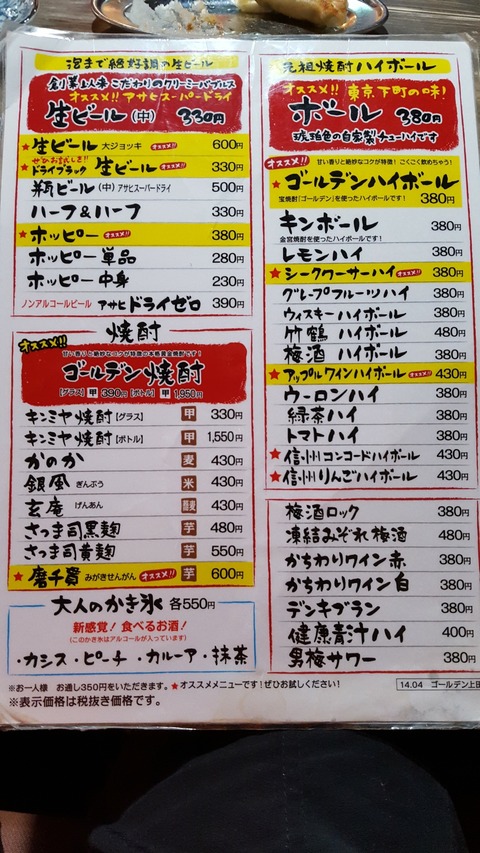 泡まで絶好調の生ビール
創業以来こだわりのクリーミーバブルス
オススメ!! アサヒスーパードライ
生ビール(中) 330円
★生ビール 大ジョッキ オススメ!! 600円
ぜひお試しを!!
★ドライブラック 生ビール オススメ!! 330円
瓶ビール(中) アサヒスーパードライ 500円
ハーフ&ハーフ 330円
★ホッピー オススメ!! 380円
ホッピー 単品 280円
ホッピー 中身 230円
ノンアルコールビール アサヒ ドライゼロ 390円
焼酎
オススメ!!
甘い香りと絶妙なコクが特徴の本格黄金焼酎です!
ゴールデン焼酎
[グラス] 甲 390円 [ボトル] 甲 1,950円
キンミヤ焼酎[グラス] 甲 330円
キンミヤ焼酎[ボトル] 甲 1,550円
かのか 麦 430円
銀風 ぎんぷう 米 430円
玄庵 げんあん 蕎麦 430円
さつま司黒麹 芋 480円
さつま司黄麹 芋 550円
★磨千貫 みがきせんがん オススメ!! 芋 600円
大人のかき氷 各550円
新感覚!食べるお酒!
(このかき氷はアルコールが入っています)
・カシス・ピーチ ・カルーア・抹茶
元祖焼酎ハイボール
オススメ!! 東京下町の味!
ボール 380円
琥珀色の自家製チューハイです
オススメ!! 甘い香りと絶妙なコクが特徴!ごくごく飲めちゃう!
★ゴールデンハイボール
宝焼酎「ゴールデン」を使ったハイボールです! 380円
キンボール 380円
金宮焼酎を使ったハイボールです!
レモンハイ 380円
★シークワーサーハイ オススメ!! 380円
グレープフルーツハイ 380円
ウィスキーハイボール 380円
竹鶴 ハイボール 480円
梅酒 ハイボール 380円
★アップルワインハイボール オススメ!! 430円
ウーロンハイ 380円
緑茶ハイ 380円
トマトハイ 380円
★信州コンコードハイボール 430円
★信州りんごハイボール 430円
梅酒ロック 380円
凍結みぞれ梅酒 480円
かちわりワイン赤 380円
かちわりワイン白 380円
デンキブラン 380円
健康青汁ハイ 400円
男梅サワー 380円
※お一人様 お通し350円をいただきます。★オススメメニューです!ぜひお試しください!
14.04 ゴールデン上田
※表示価格は税抜き価格です。